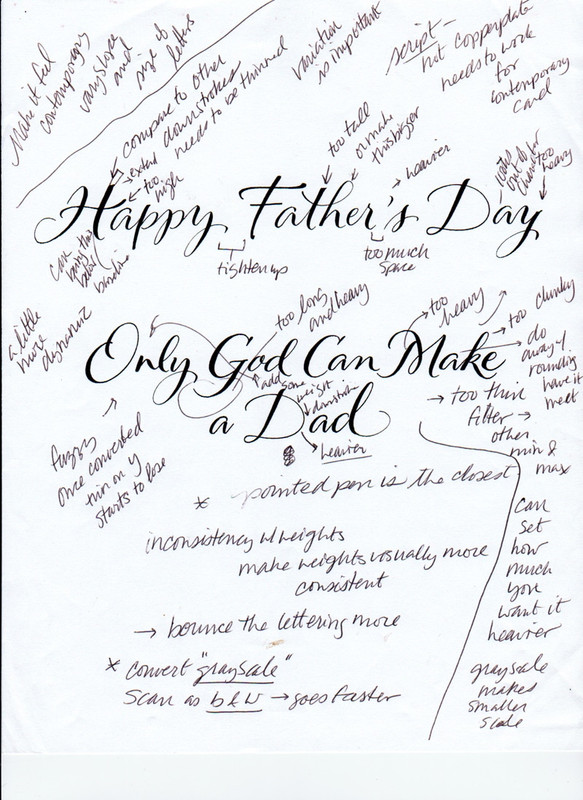 Make it feel
contemporary
vary slope
and
size of
letters
compare to other
downstrokes
needs to be thinned
variation
is important
script –
not copperplate
needs to work
for
contemporary
card
→ extend
← too
high
too tall
or make
this bigger
→ heavier
too
heavy
Happy Father's Day
can
bring this
below
baseline
tighten up
too much
space
a little
more
dynamic
too long
and heavy
→ too
heavy
→ too clunky
→ do
away w/
rounding
have it
meet
Only God Can Make
add some
weight
downstroke
a Dad
→ heavier
→ too thin
filter →
other
min &
max
fuzzy
once converted
thin on y
starts to lose
* pointed pen is the closest
inconsistency w/ weights
make weights visually more
consistent
→ bounce the lettering more
* convert "grayscale"
scan as b & w → goes faster
can
set
how
much
you
want it
heavier
grayscale
makes
smaller
scale